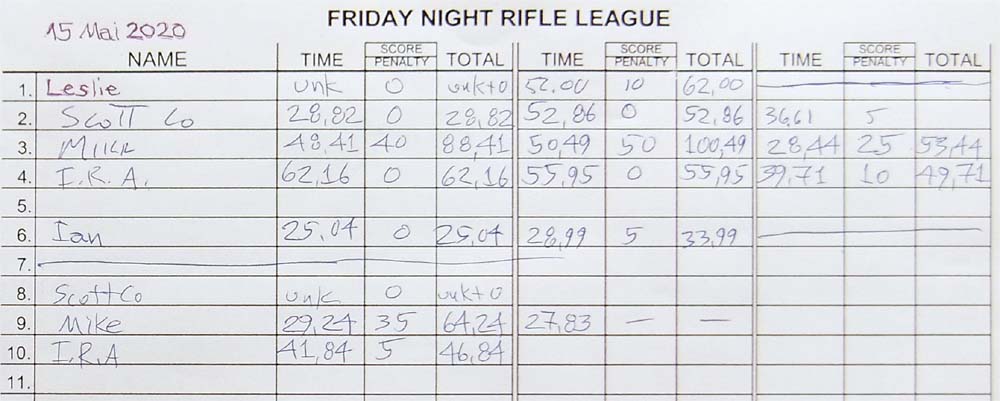 FRIDAY NIGHT RIFLE LEAGUE
15 Mai 2020
NAME TIME SCORE PENALTY TOTAL TIME SCORE PENALTY TOTAL TIME SCORE PENALTY TOTAL
1. Leslie unk 0 unk+0 52.00 10 62,00
2. Scott Co 28,82 0 28,82 52,86 0 52,86 36,61 5
3. 48,41 40 88,41 50,49 50 100,49 28,44 25 53,44
4. I.R.A. 62,16 0 62,16 55,95 0 55,95 39,71 10 49,71
5.
6. Ian 25,04 0 25,04 28,99 5 33,99
7.
8. Scott Co unk 0 unk+0
9. Mike 29,24 35 64,24 27,83 — —
10. I.R.A 41,84 5 46,84
11.